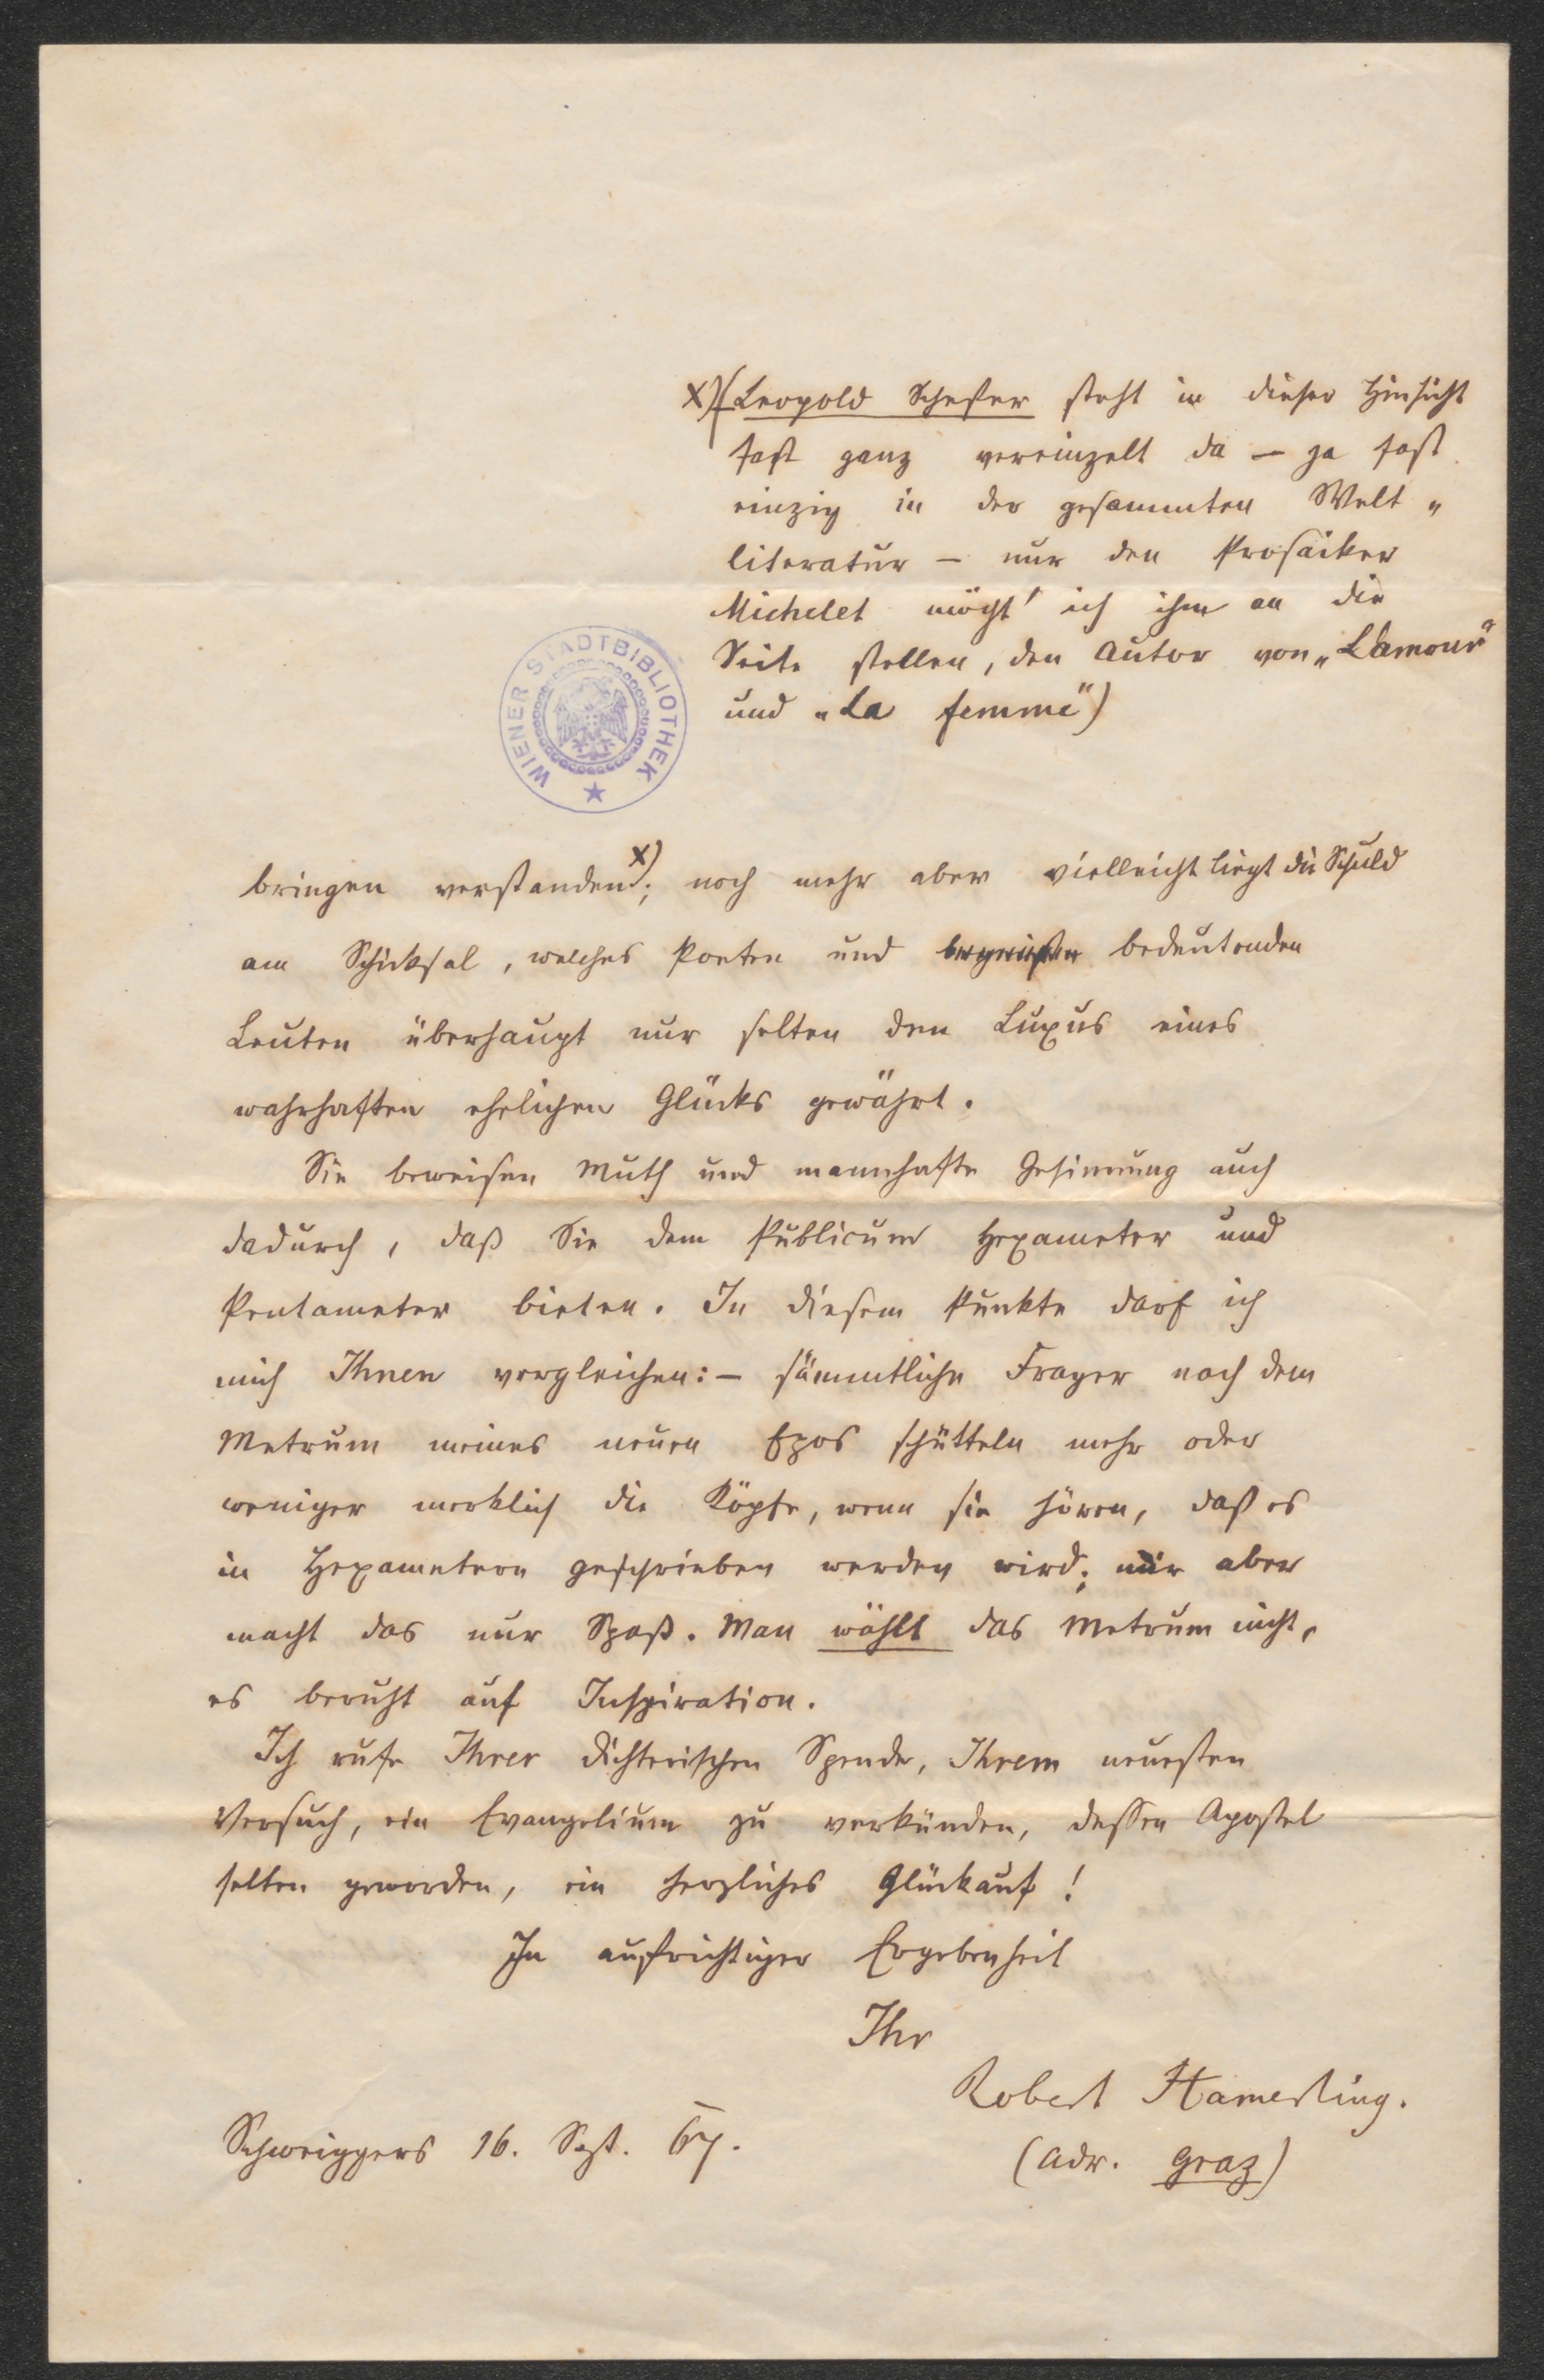 x) (Leopold Schefer steht in dieser Hinsicht
fast ganz vereinzelt da – ja fast
einzig in der gesammten Welt„
literatur – nur den Prosaiker
Michelet möcht' ich ihm an die
Seite stellen, den Autor von „L'amour"
und „La femme")
WIENER STADTBIBLIOTHEK
bringen verstanden x); noch mehr aber vielleicht liegt die Schuld
am Schicksal, welches Poeten und bedeutenden
Leuten überhaupt nur selten den Luxus eines
wahrhaften ehelichen Glücks gewährt.
Sie beweisen Muth und mannhafte Gesinnung auch
dadurch, daß Sie dem Publicum Hexameter und
Pentameter bieten. In diesem Punkte darf ich
mich Ihnen vergleichen: – sämmtliche Frager nach dem
Metrum meines neuen Epos schütteln mehr oder
weniger merklich die Köpfe, wenn sie hören, daß es
in Hexametern geschrieben werden wird; mir aber
macht das nur Spaß. Man wählt das Metrum nicht,
es beruht auf Inspiration.
Ich rufe Ihrer dichterischen Spende, Ihrem neuesten
Versuch, ein Evangelium zu verkünden, dessen Apostel
selten geworden, ein herzliches Glückauf!
In aufrichtiger Ergebenheit
Ihr
Robert Hamerling.
Schweiggers 16. Sept. 67.
(Adr. Graz)